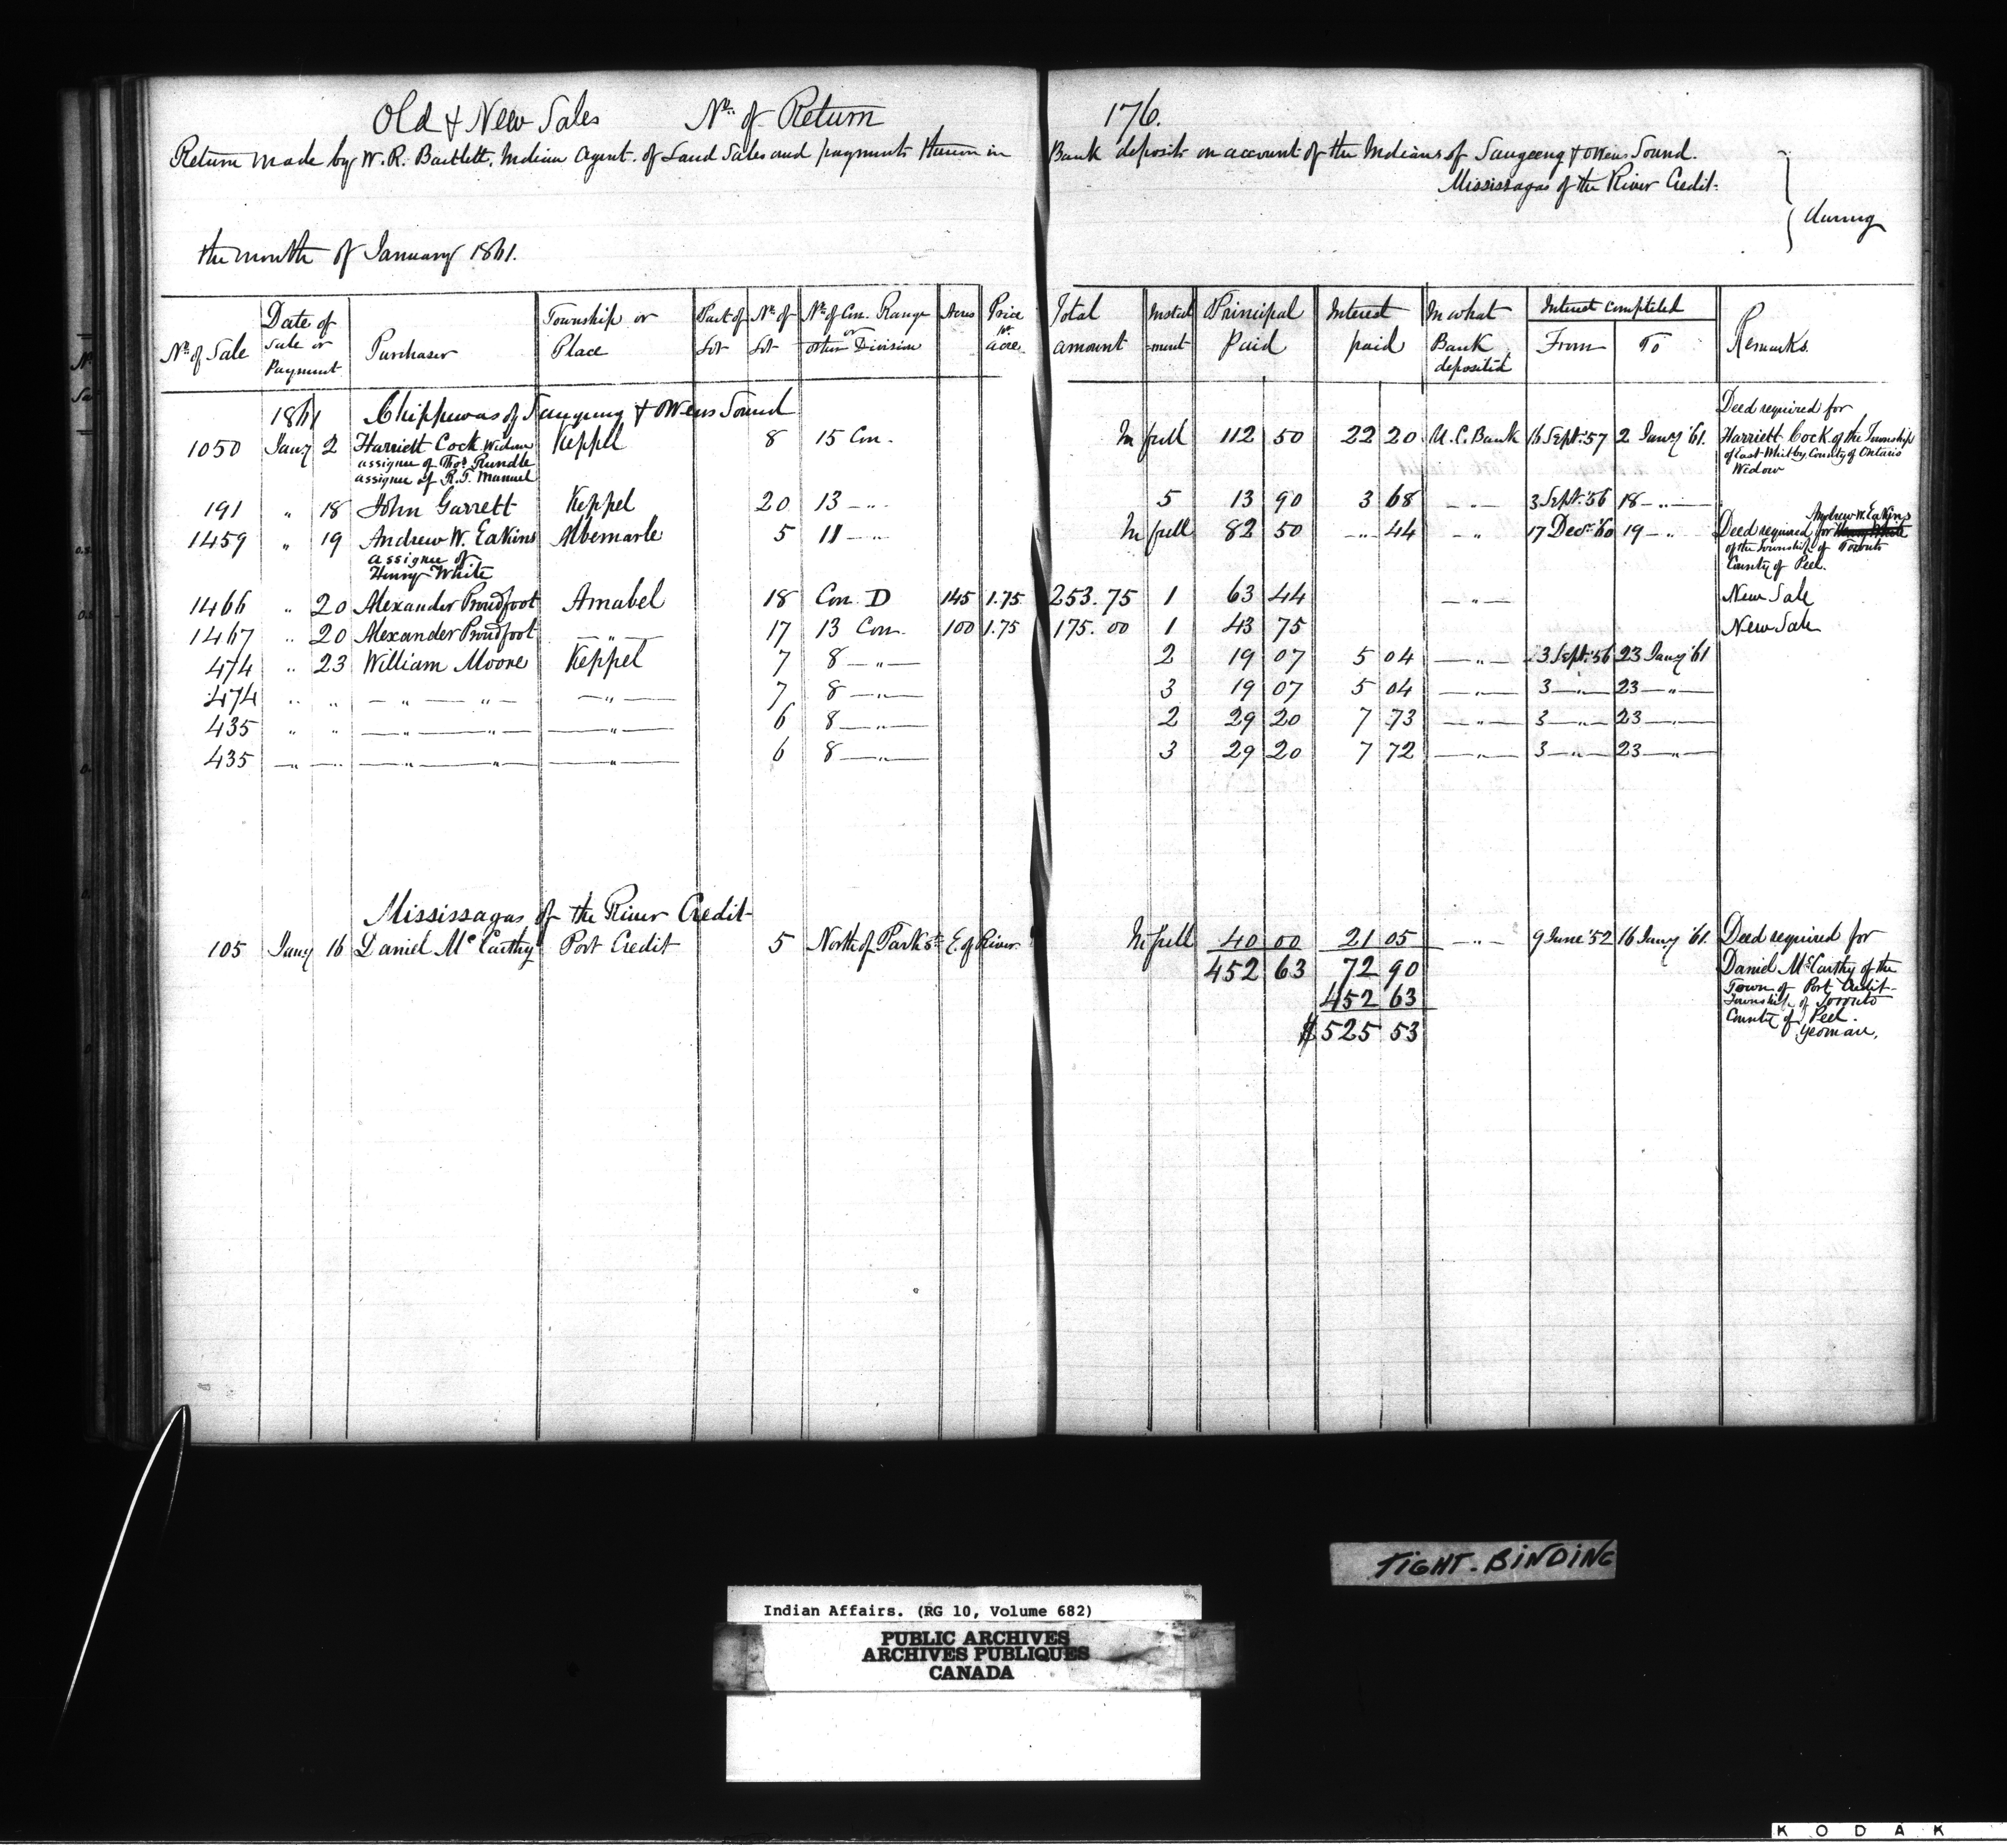 Old & New Sales No. of Return 176.
Return made by W. R. Bartlett, Indian Agent. of Land Sales and payments thereon in Bank deposits on account of the Indians of Saugeeng & Owens Sound.
Mississagas of the River Credit.
during
the month of January 1861.
No. of Sale | Date of Sale or Payment | Purchaser | Township or Place | Part of Lot | No. of Lot | No. of Con. Range or other Division | Acres | Price pr. acre | Total amount | Instalment | Principal Paid | Interest paid | In what Bank deposited | Interest computed From | To | Remarks.
1861 Chippewas of Saugeeng & Owens Sound
Deed required for
1050 Jany 2 Harriett Cock Widow Keppel 8 15 Con. In full 112 50 22 20 U.C. Bank 16 Sept. '57 2 Jany '61. Harriett Cock of the Township
assignee of Thos. Rundle of East Whitby County of Ontario
assignee of R. T. Manuel Widow
191 " 18 John Garrett Keppel 20 13 - " - 5 13 90 3 68 - " - 3 Sept. '56 18 - " -
Andrew W. Eakins
1459 " 19 Andrew W. Eakins Albemarle 5 11 - " - In full 82 50 - " - 44 - " - 17 Decr '60 19 - " - Deed required for Henry White
assignee of of the Township of Toronto
Henry White County of Peel.
1466 " 20 Alexander Proudfoot Amabel 18 Con. D 145 1.75 253.75 1 63 44 - " - New Sale
1467 " 20 Alexander Proudfoot - " - 17 13 Con. 100 1.75 175.00 1 43 75 New Sale
474 " 23 William Moore Keppel 7 8 - " - 2 19 07 5 04 - " - 3 Sept. '56 23 Jany '61
474 " " - " - " - - " - 7 8 - " - 3 19 07 5 04 - " - 3 - " - 23 - " -
435 " " - " - " - - " - 6 8 - " - 2 29 20 7 73 - " - 3 - " - 23 - " -
435 - " - - " - - " - " - - " - 6 8 - " - 3 29 20 7 72 - " - 3 - " - 23 - " -
Mississagas of the River Credit
105 Jany 16 Daniel McCarthy Port Credit 5 North of Park St. E. of River In full 40 00 21 05 - " - 9 June '52 16 Jany '61. Deed required for
452 63 72 90 Daniel McCarthy of the
452 63 Town of Port Credit
Township of Toronto
$525 53 County of Peel.
Yeoman.
TIGHT-BINDING
Indian Affairs. (RG 10, Volume 682)
PUBLIC ARCHIVES
ARCHIVES PUBLIQUES
CANADA
KODAK